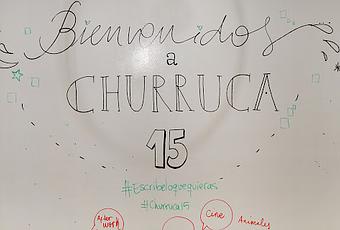 Bienvenidos
a
CHURRUCA
15
#Escribeloquequieras
#Churruca15
Cine
Animales